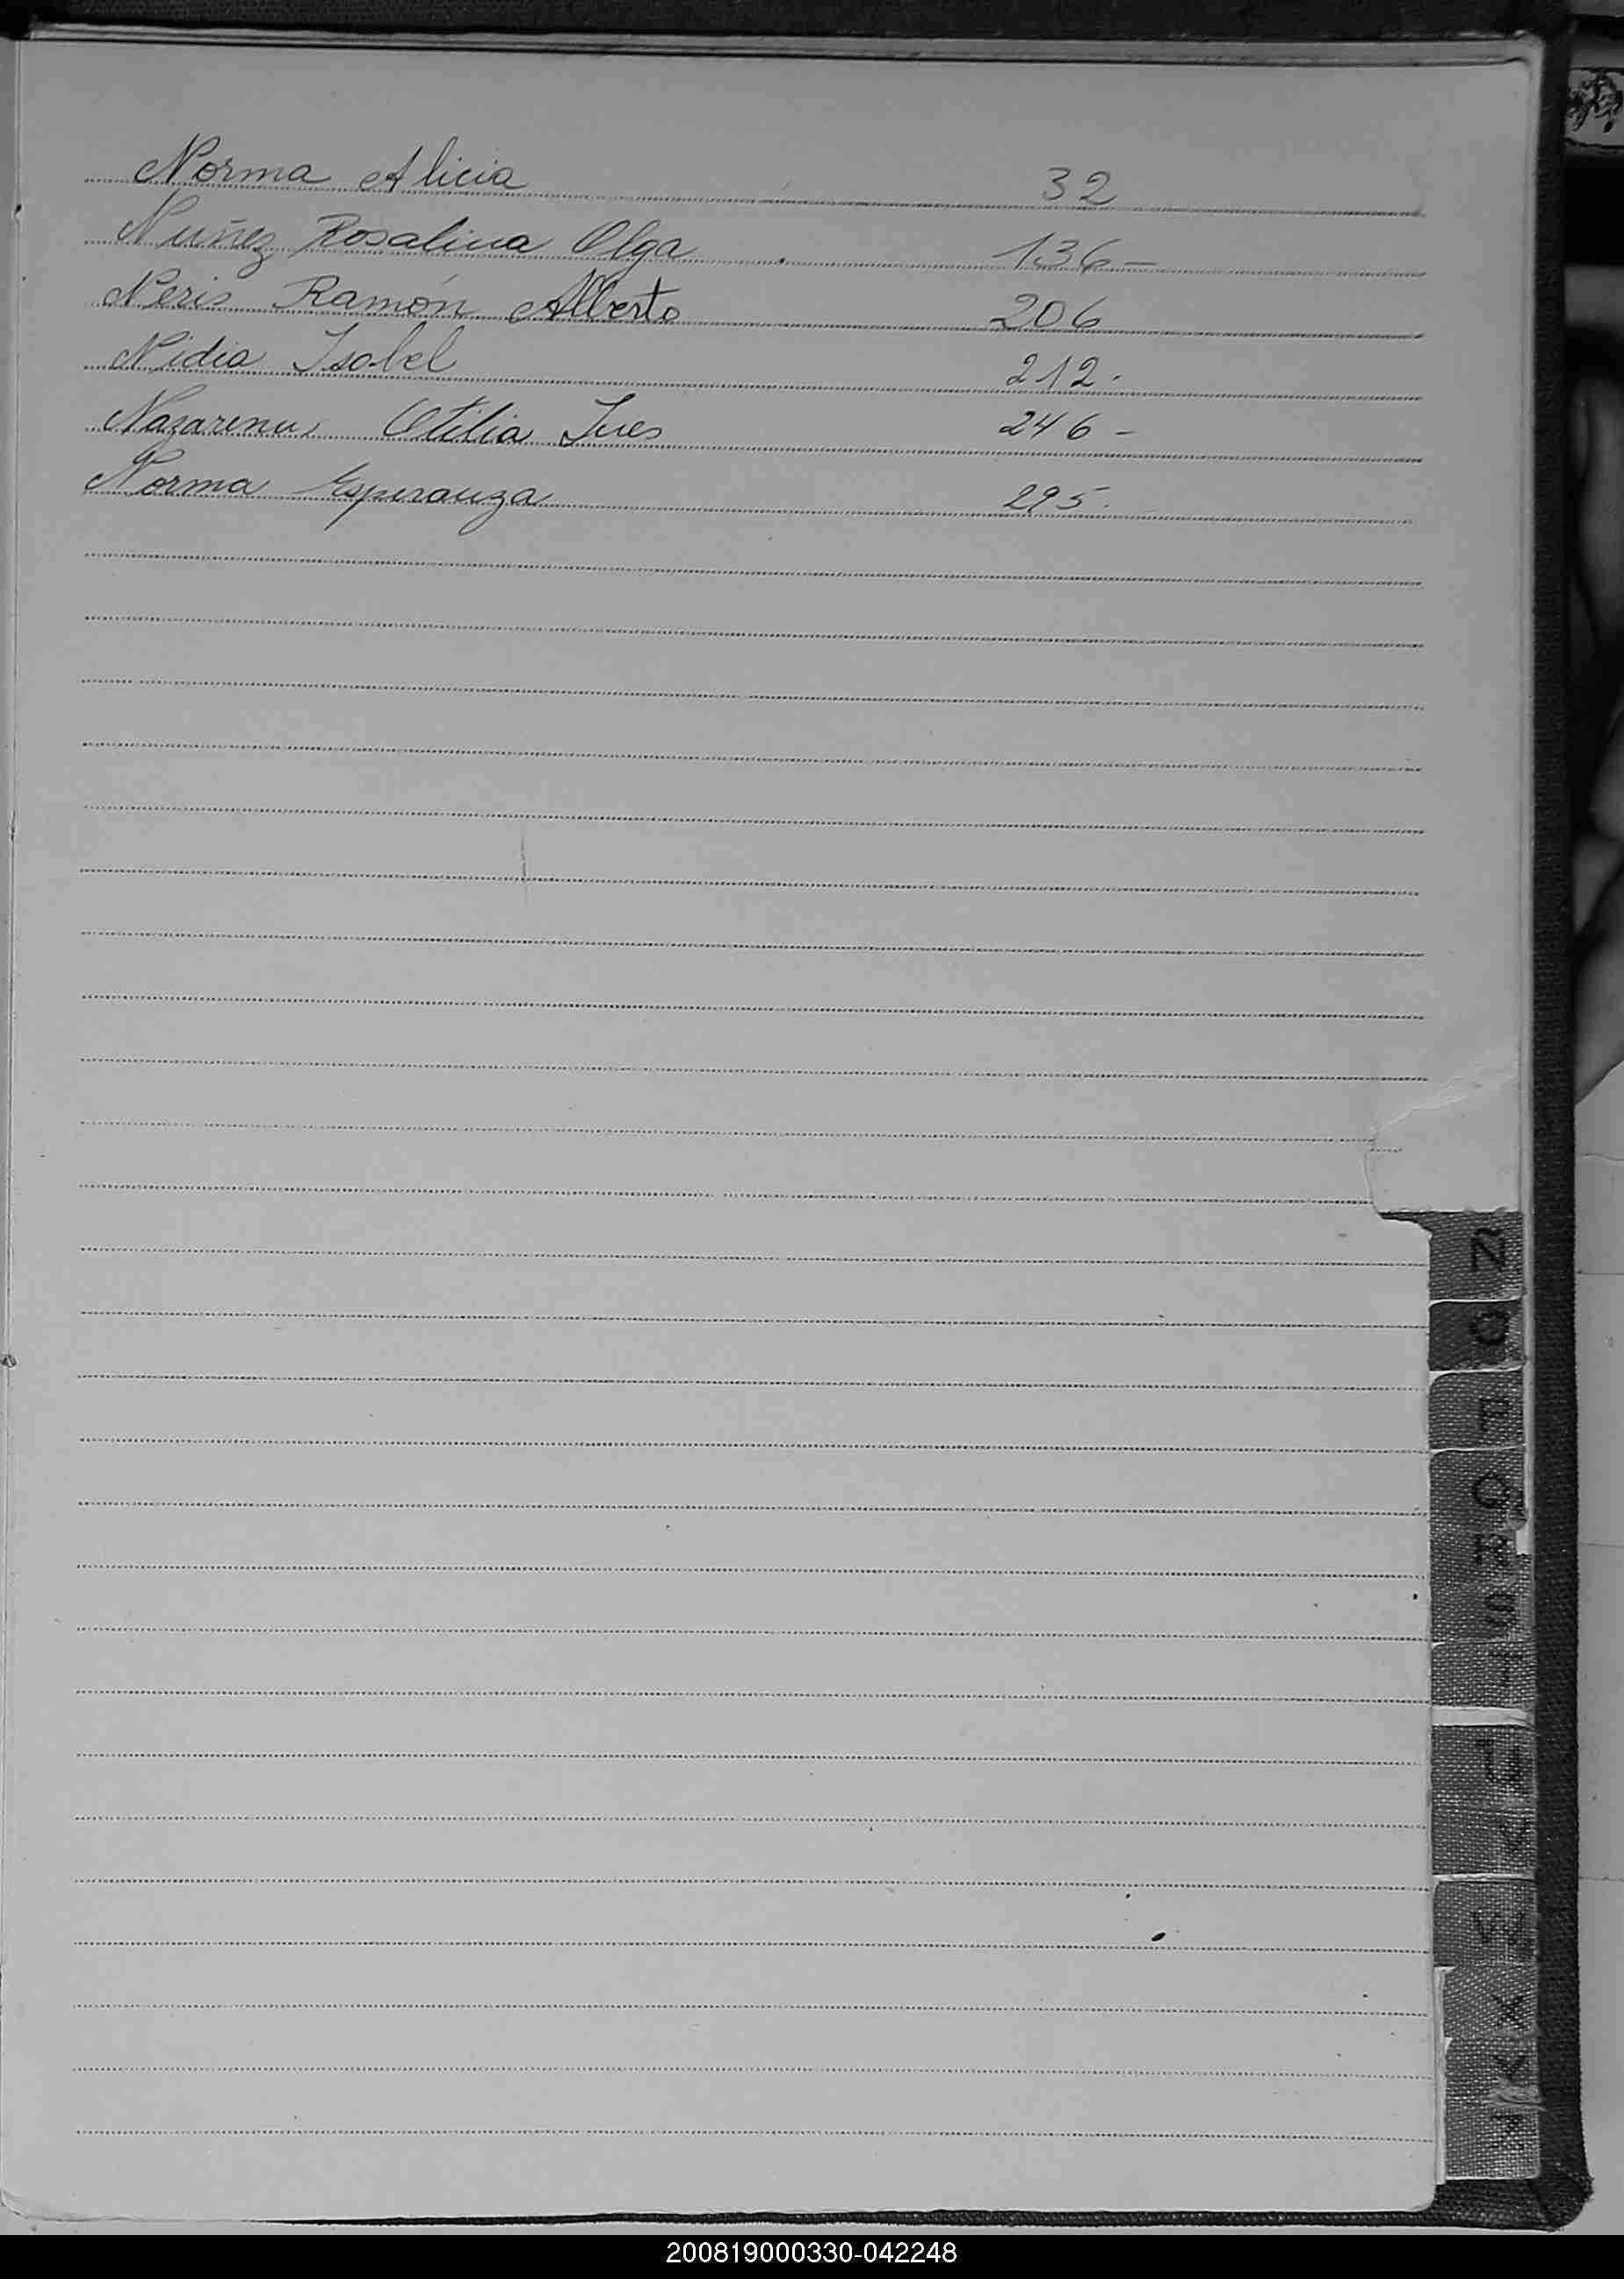 Norma Alicia 32
Nuñez Rosalina Olga 136-
Neris Ramón Alberto 206
Nidia Isabel 212.
Nazarenus Otilia Ines 246-
Norma Esperanza 295.
N
O
P
Q
R
S
T
U
V
W
X
Y
Z
200819000330-042248